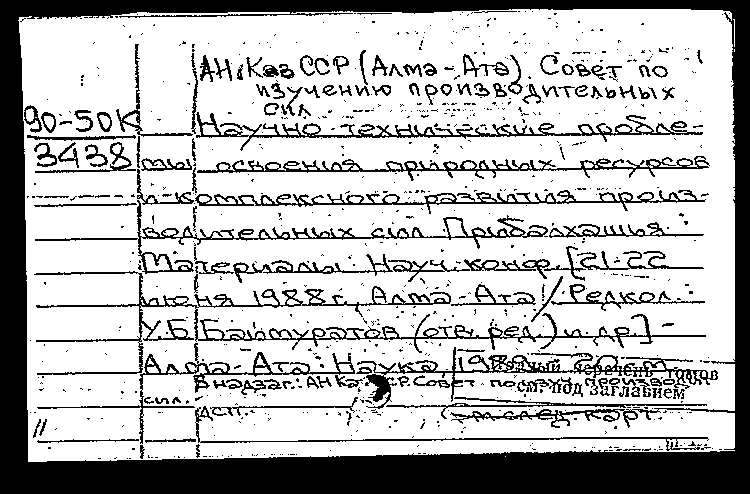 АН КазССР (Алма-Ата). Совет по
изучению производительных
сил
90-50К
3438
Научно-технические пробле-
мы освоения природных ресурсов
и комплексного развития произ-
водительных сил Прибалхашья:
Материалы науч. конф. [21-22
июня 1988 г., Алма-Ата / Редкол.:
У.Б. Баймуратов (отв. ред.) и др.] -
Алма-Ата: Наука, 1989 - 20 см
В надзаг.: АН КазССР. Совет по изуч. производ.
сил.
ДСП.
полный перечень томов
см. под заглавием
см. след. карт.
11